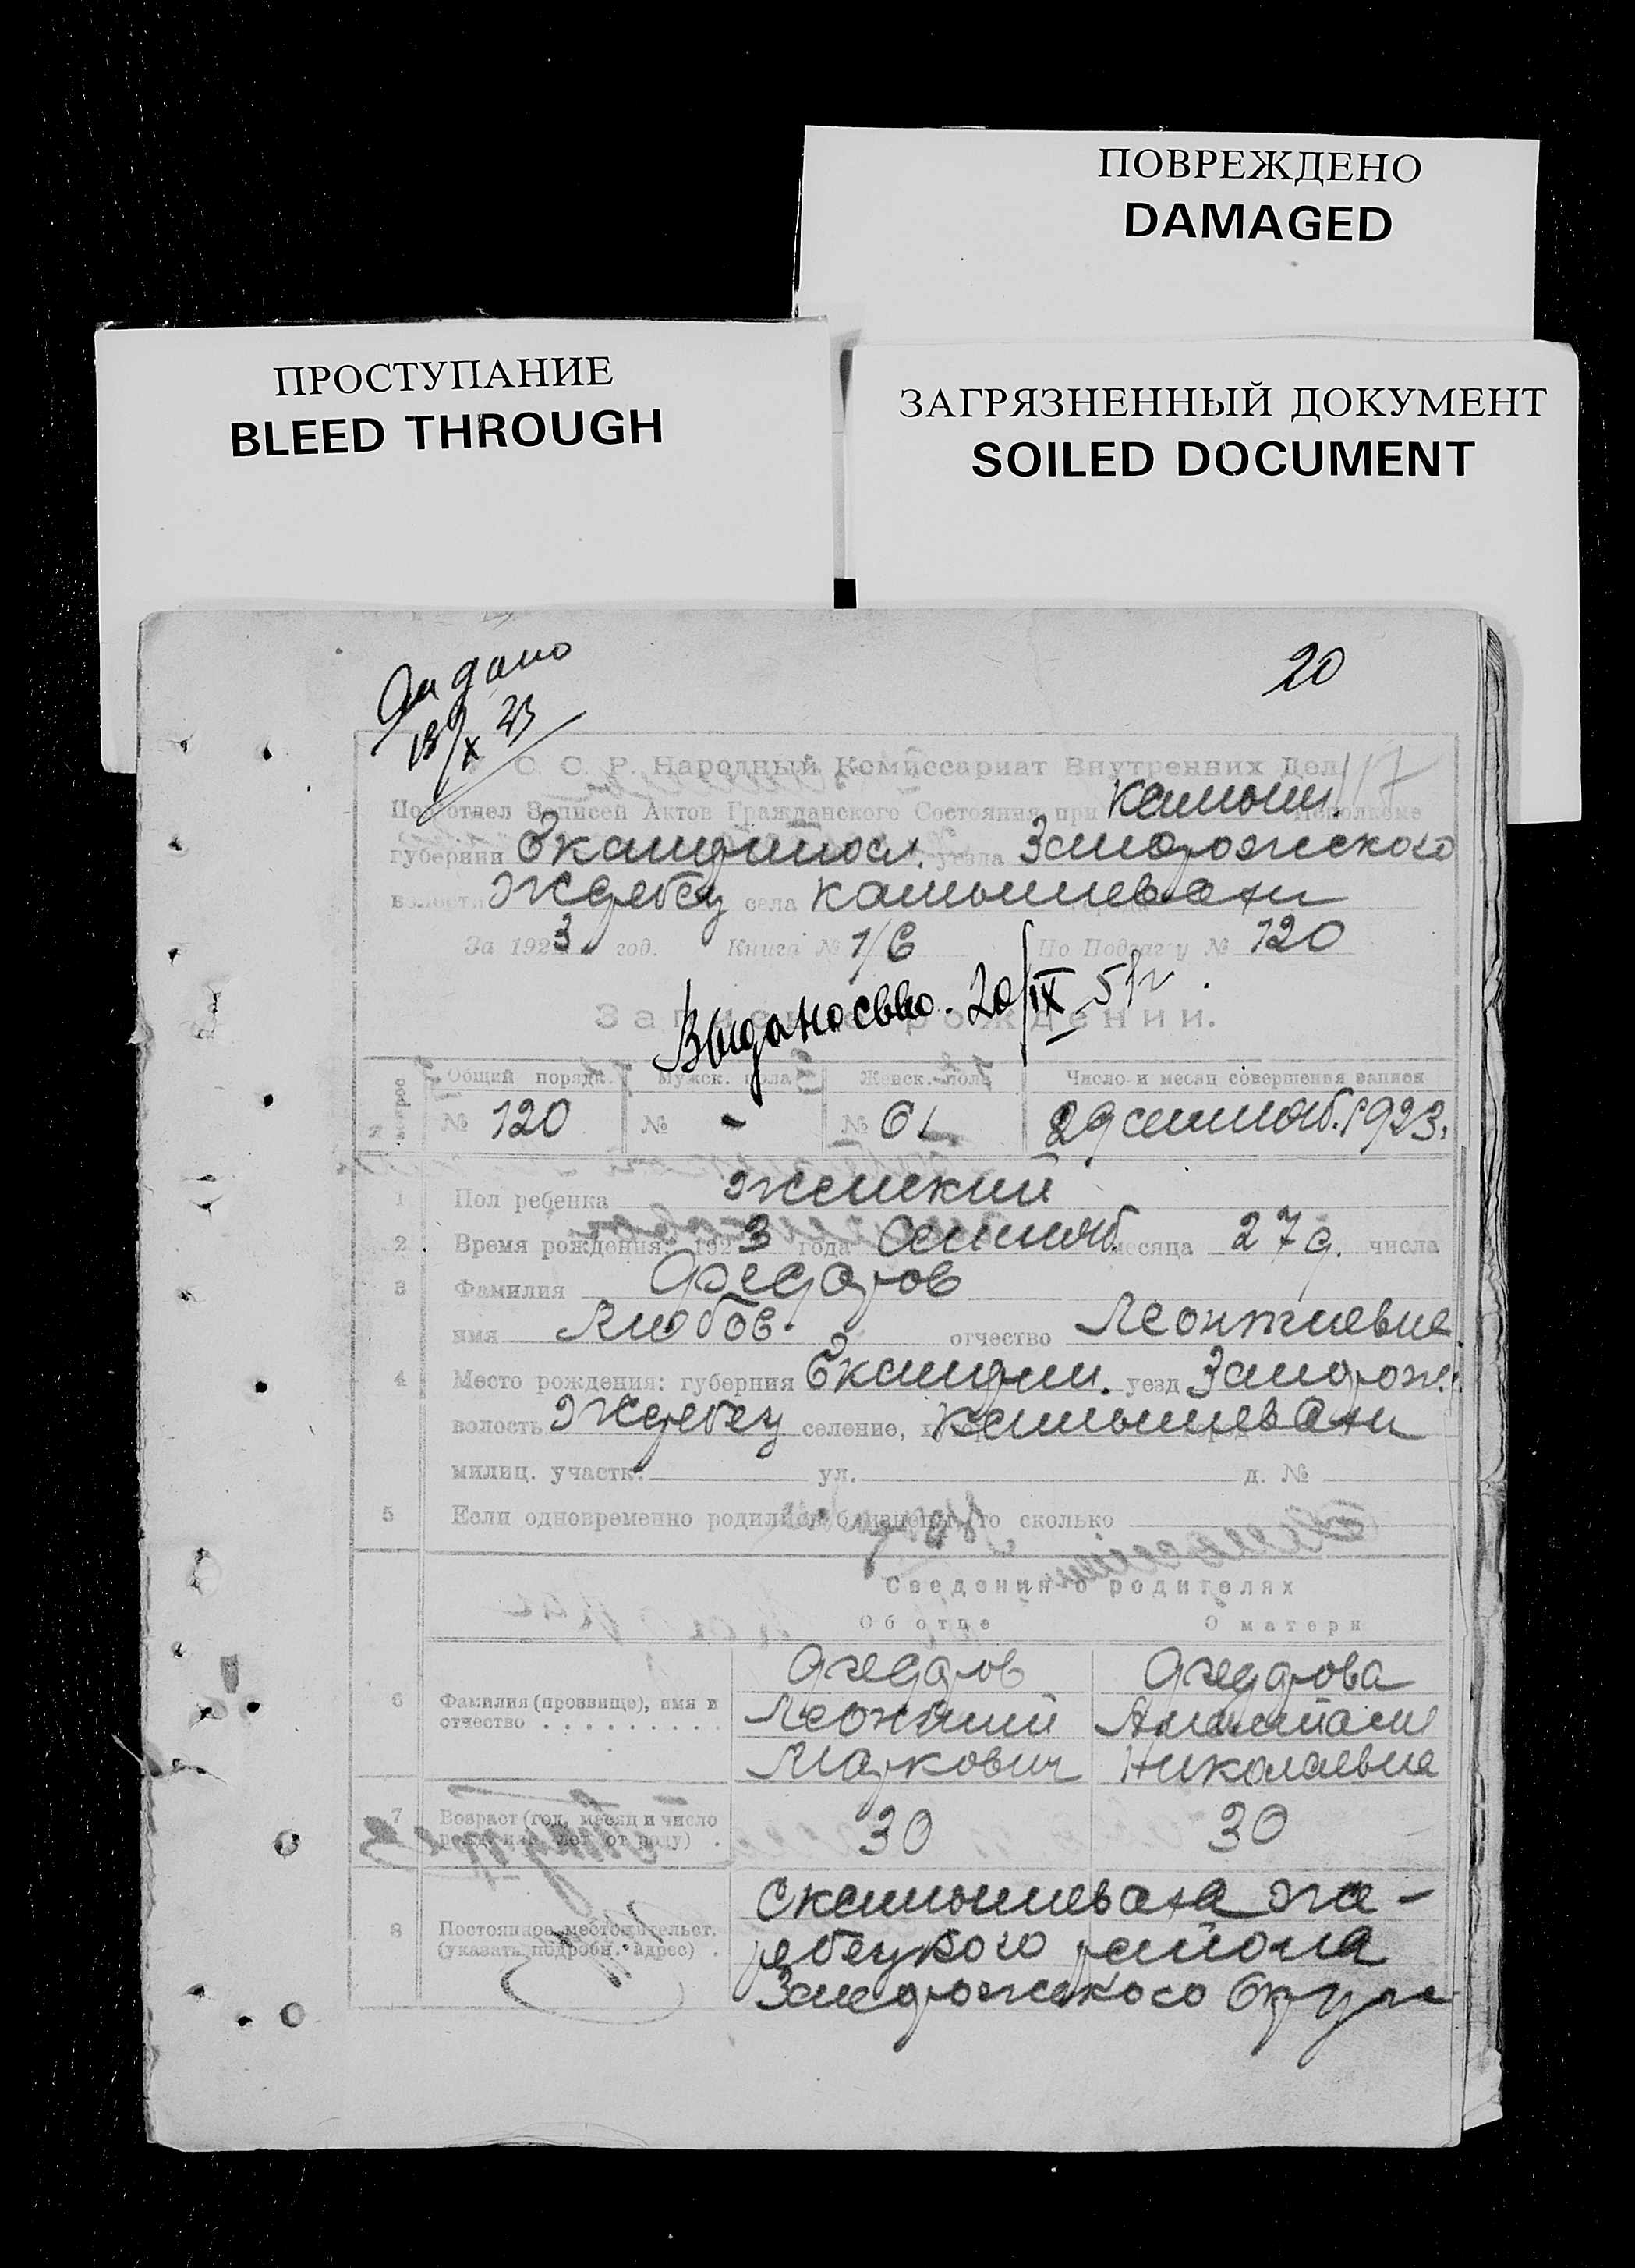 ПОВРЕЖДЕНО
DAMAGED
ПРОСТУПАНИЕ
BLEED THROUGH
ЗАГРЯЗНЕННЫЙ ДОКУМЕНТ
SOILED DOCUMENT
20
С. С. Р. Народный Комиссариат Внутренних Дел 117
Подотдел Записей Актов Гражданского Состояния при Камыш. Исполкоме
губернии уезда Запорожского
волости Жеребец села Камышеваха
За 1923 год. Книга № 1/6 По Подотделу № 120
Выдано св-во. 20/IX
Запись о рождении.
Общий порядк. Мужск. пола Женск. пола Число и месяц совершения записи
№ 120 № - № 61 29 сентяб. 1923.
1 Пол ребенка женский
2 Время рождения: 1923 года Сентяб. месяца 27 д. числа
3 Фамилия Федоров
имя Любов. отчество Леонтиевна
4 Место рождения: губерния уезд Запорож.
волость Жеребец селение, Камышеваха
милиц. участк. ул. д. №
5 Если одновременно родились близнецы, то сколько
Сведения о родителях
Об отце О матери
6 Фамилия (прозвище), имя и отчество Федоров Федорова
Леонтий
Маркович Николаевна
7 Возраст (год, месяц и число рожд. или лет от роду) . 30 30
8 Постоянное местожительст. (указать подробн. адрес) . С Камышеваха Же-
ребецкого района
Запорожского Округа